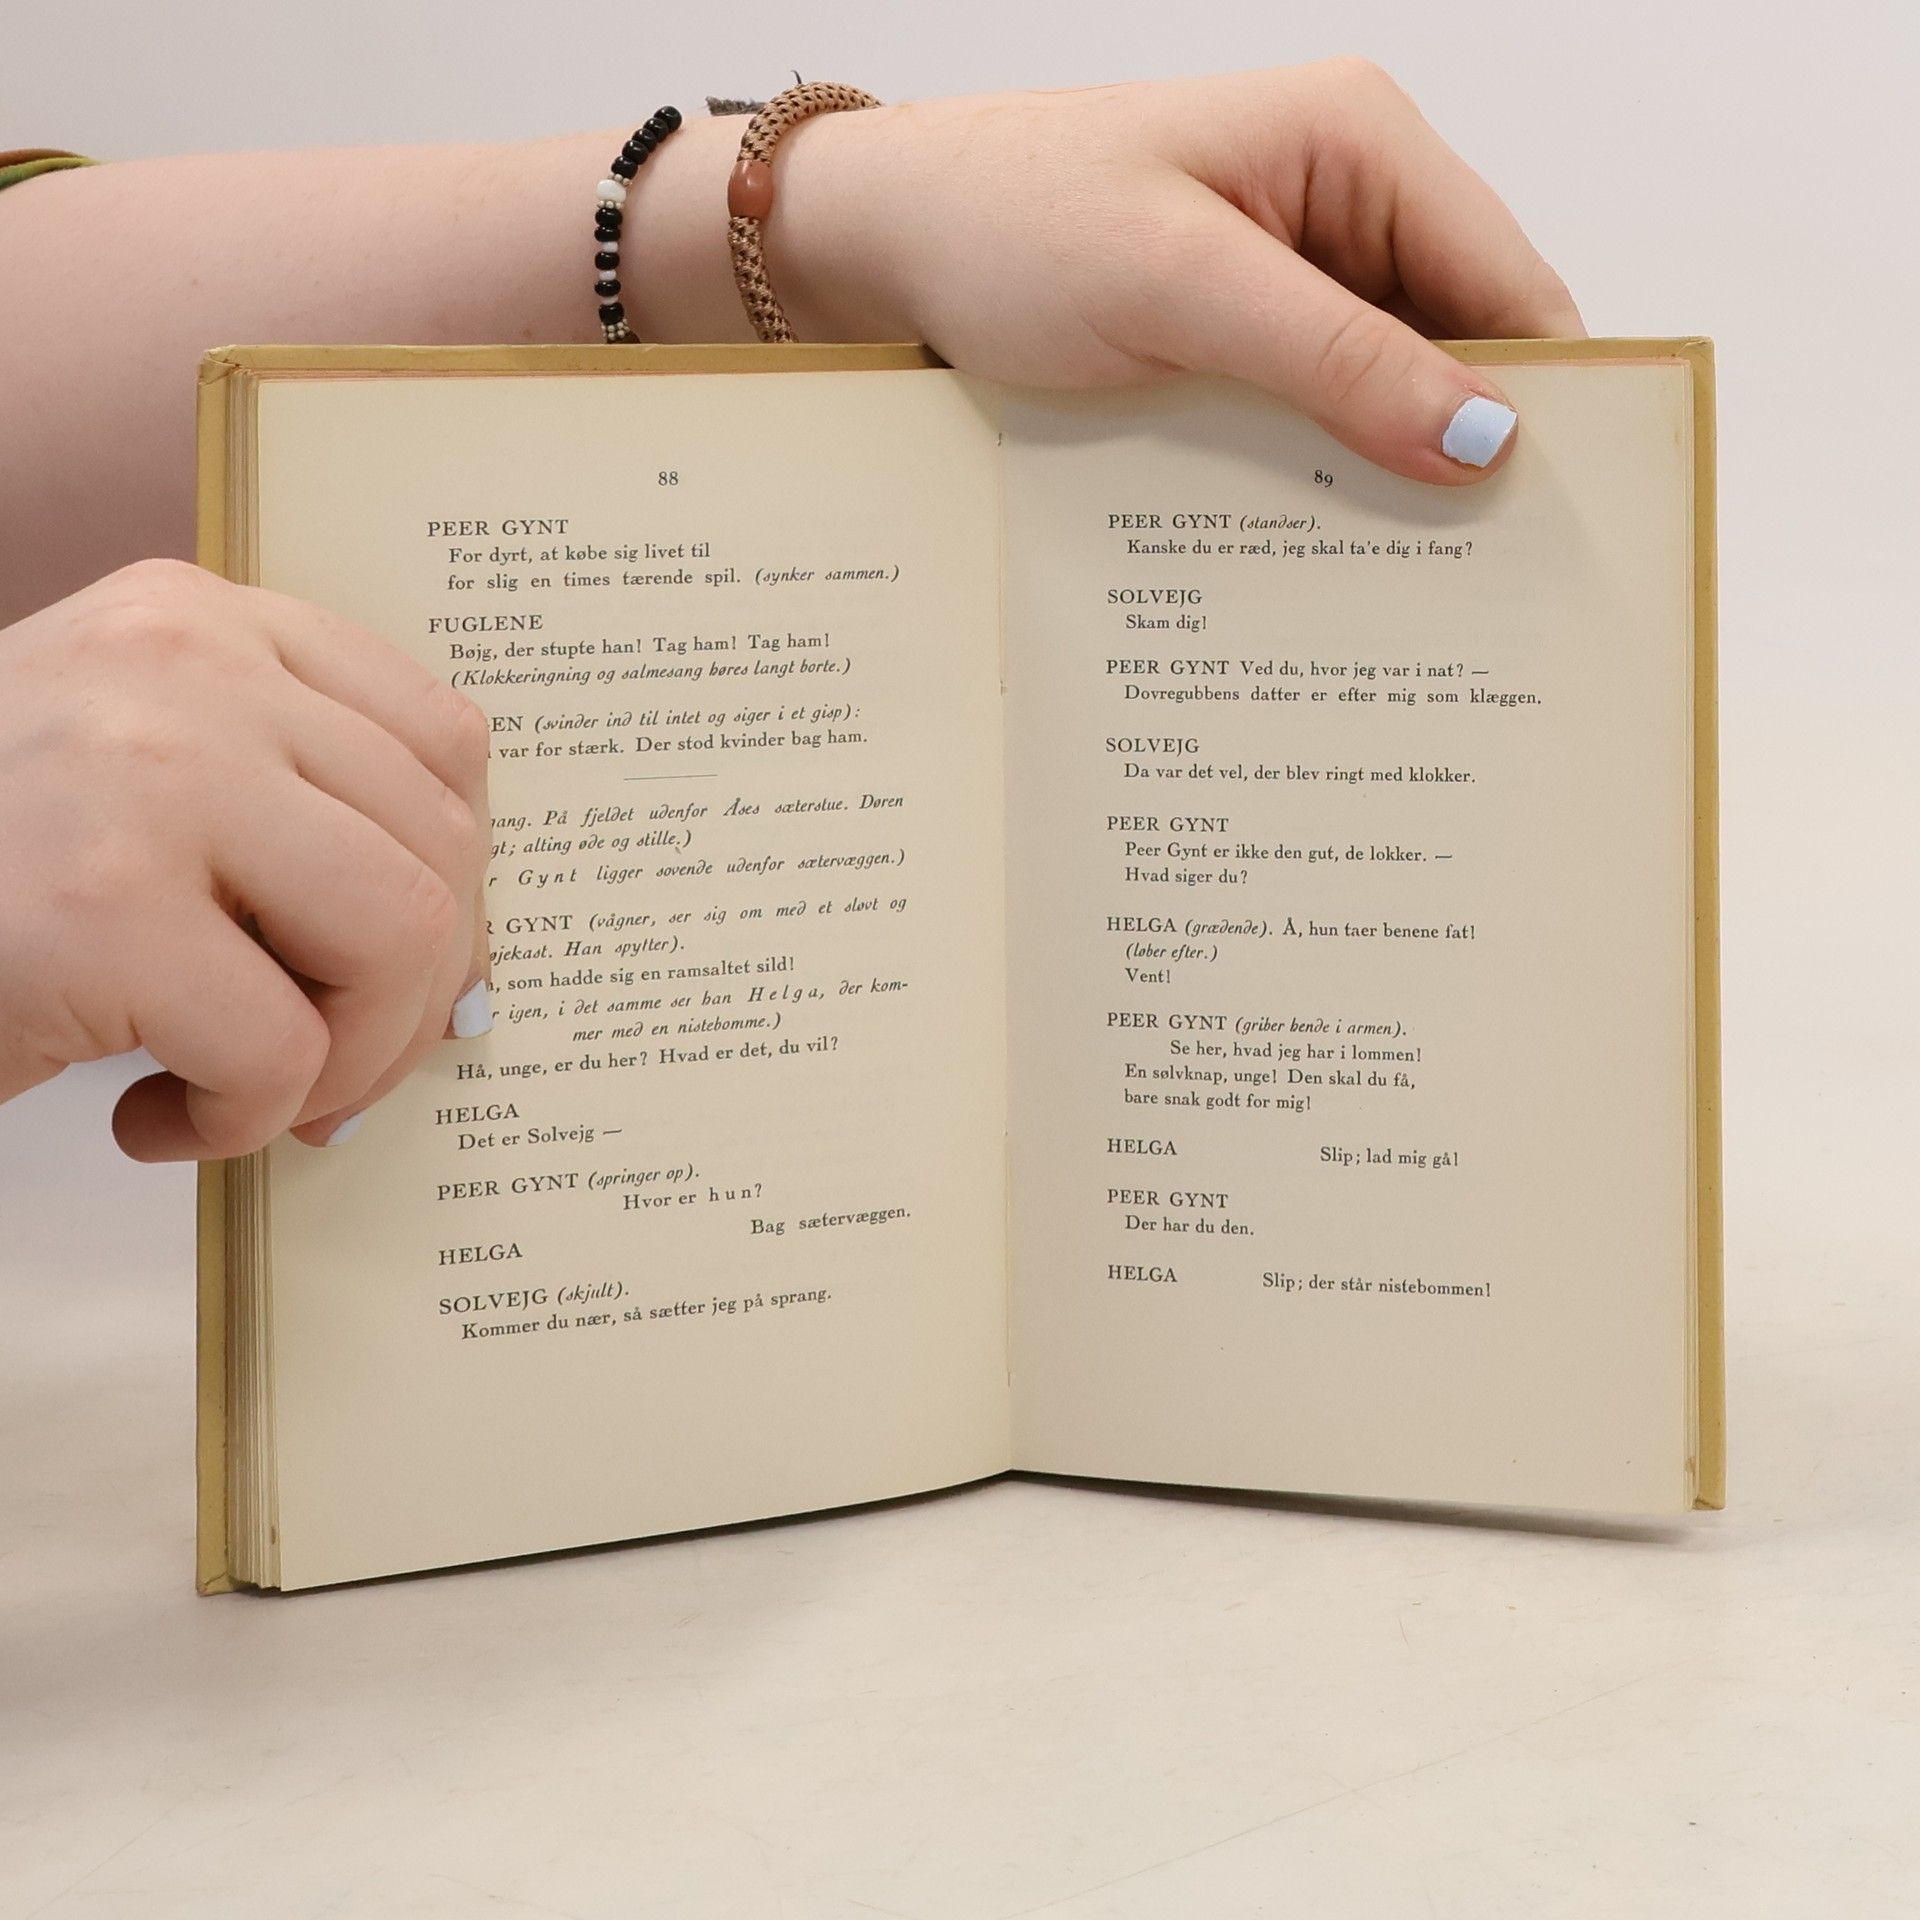 88
PEER GYNT
For dyrt, at købe sig livet til
for slig en times tærende spil. (synker sammen.)
FUGLENE
Bøjg, der stupte han! Tag ham! Tag ham!
(Klokkeringning og salmesang høres langt borte.)
(svinder ind til intet og siger i et gisp):
var for stærk. Der stod kvinder bag ham.
På fjeldet udenfor Åses sæterstue. Døren
alting øde og stille.)
Gynt ligger sovende udenfor sætervæggen.)
GYNT (vågner, ser sig om med et sløvt og
Han spytter).
som hadde sig en ramsaltet sild!
igen, i det samme ser han Helga, der kom-
mer med en nistebomme.)
Hå, unge, er du her? Hvad er det, du vil?
HELGA
Det er Solvejg —
PEER GYNT (springer op).
Hvor er hun?
Bag sætervæggen.
HELGA
SOLVEJG (skjult).
Kommer du nær, så sætter jeg på sprang.
89
PEER GYNT (standser).
Kanske du er ræd, jeg skal ta'e dig i fang?
SOLVEJG
Skam dig!
PEER GYNT Ved du, hvor jeg var i nat? —
Dovregubbens datter er efter mig som klæggen.
SOLVEJG
Da var det vel, der blev ringt med klokker.
PEER GYNT
Peer Gynt er ikke den gut, de lokker. —
Hvad siger du?
HELGA (grædende). Å, hun taer benene fat!
(løber efter.)
Vent!
PEER GYNT (griber hende i armen).
Se her, hvad jeg har i lommen!
En sølvknap, unge! Den skal du få,
bare snak godt for mig!
HELGA Slip; lad mig gå!
PEER GYNT
Der har du den.
HELGA Slip; der står nistebommen!